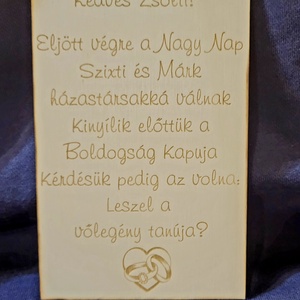 Kedves Zsolti!
Eljött végre a Nagy Nap
Szixti és Márk
házastársakká válnak
Kinyílik előttük a
Boldogság Kapuja
Kérdésük pedig az volna:
Leszel a
vőlegény tanúja?